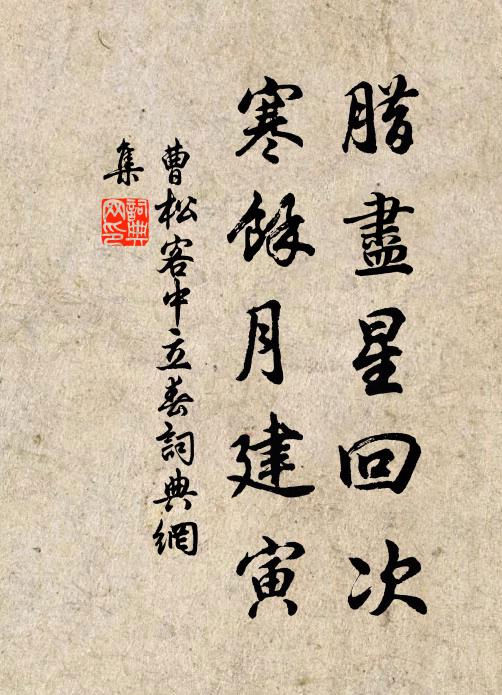 腊盡星回次
寒餘月建寅
曹松客中立春詞典網
集
詞典
网印